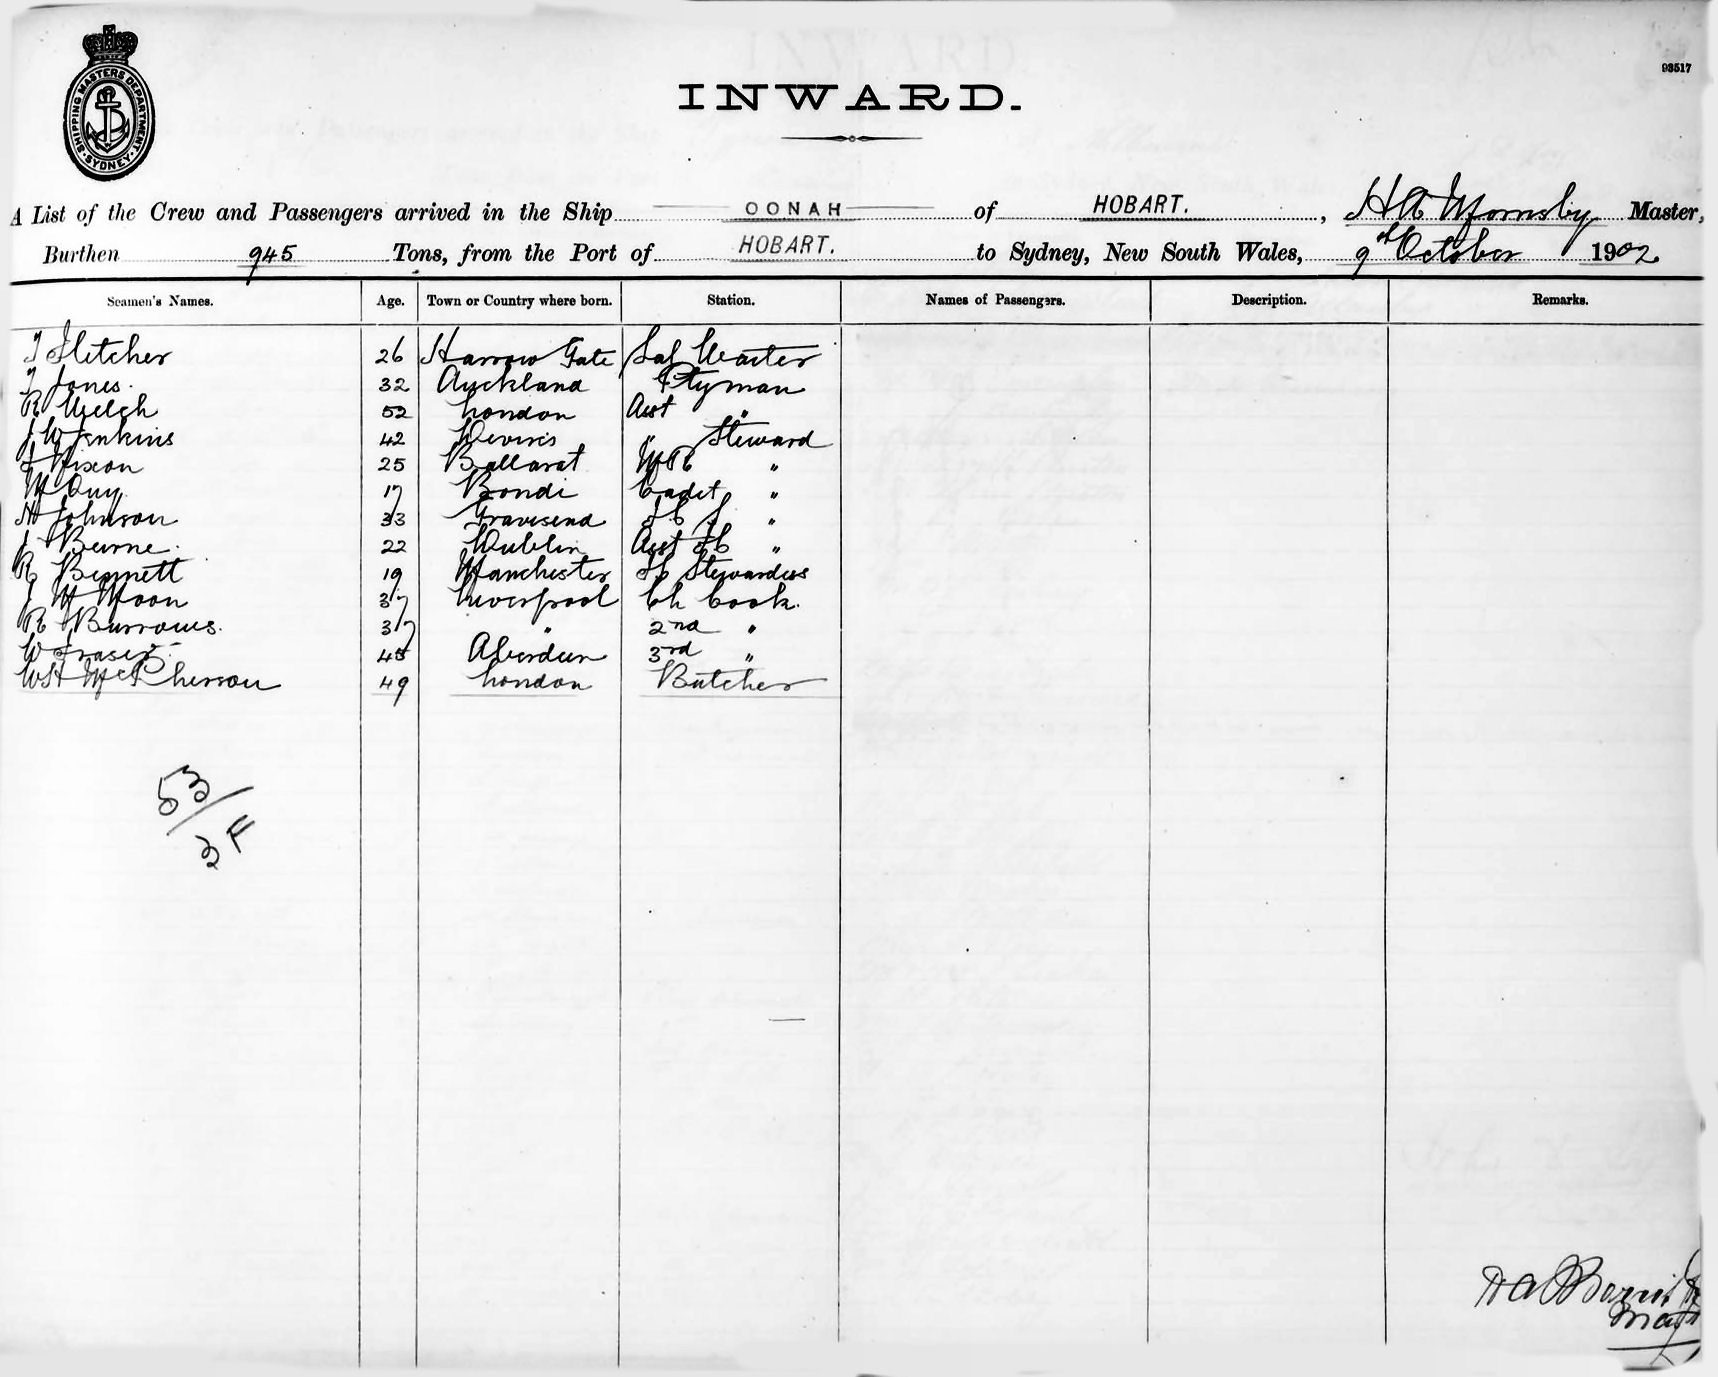 SHIPPING MASTERS DEPARTMENT
SYDNEY
93517
INWARD.
A List of the Crew and Passengers arrived in the Ship OONAH of HOBART. , Master,
Burthen 945 Tons, from the Port of HOBART. to Sydney, New South Wales, 9th October 1902
Seamen's Names. Age. Town or Country where born. Station. Names of Passengers. Description. Remarks.
T Fletcher 26 Harrow Gate Sal Waiter
T Jones. 32 Auckland Ptyman
R Welch 52 London Asst "
J W Jenkins 42 Devizes " Steward
J Nixon 25 Ballarat "
M Guy 17 Bondi Cadet "
H Johnson 33 Gravesend "
J Beirne. 22 Dublin Asst "
R Bennett 19 Manchester Stewardess
J M Moon 37 Liverpool Ch Cook.
R Burrows. 37 " 2nd "
W Fraser 45 Aberdeen 3rd "
WH McPherson 49 London Butcher
53
3 F